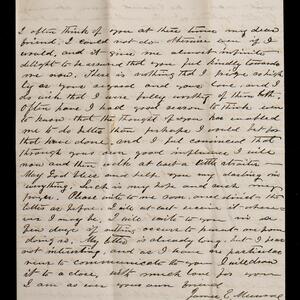 I often think of you at these times my dear
friend, I could not do otherwise even if I
would, and it gives me almost infinite
delight to be assured that you feel kindly towards
me now. There is nothing that I prize as high-
ly as your regard and your love, and I
do wish that I were fully worthy of them both.
Often have I had good reason to think even
to know that the thought of you has enabled
me to do better than perhaps I would but for
that have done, and I feel convinced that
through your own good influence I will
now and then write at least a little
May God bless and help you my darling in
everything. Such is my hope and such my
prayer. Please write to me soon, and direct the
letter as before. I do not know where
I may be, I will write to you in a
few days if nothing occurs to prevent me from
doing so. My letter is already long, but I fear
not interesting, and as I have no particular
news to communicate to you I will draw
it to a close, with much love for you
I am as ever your own friend
James E.